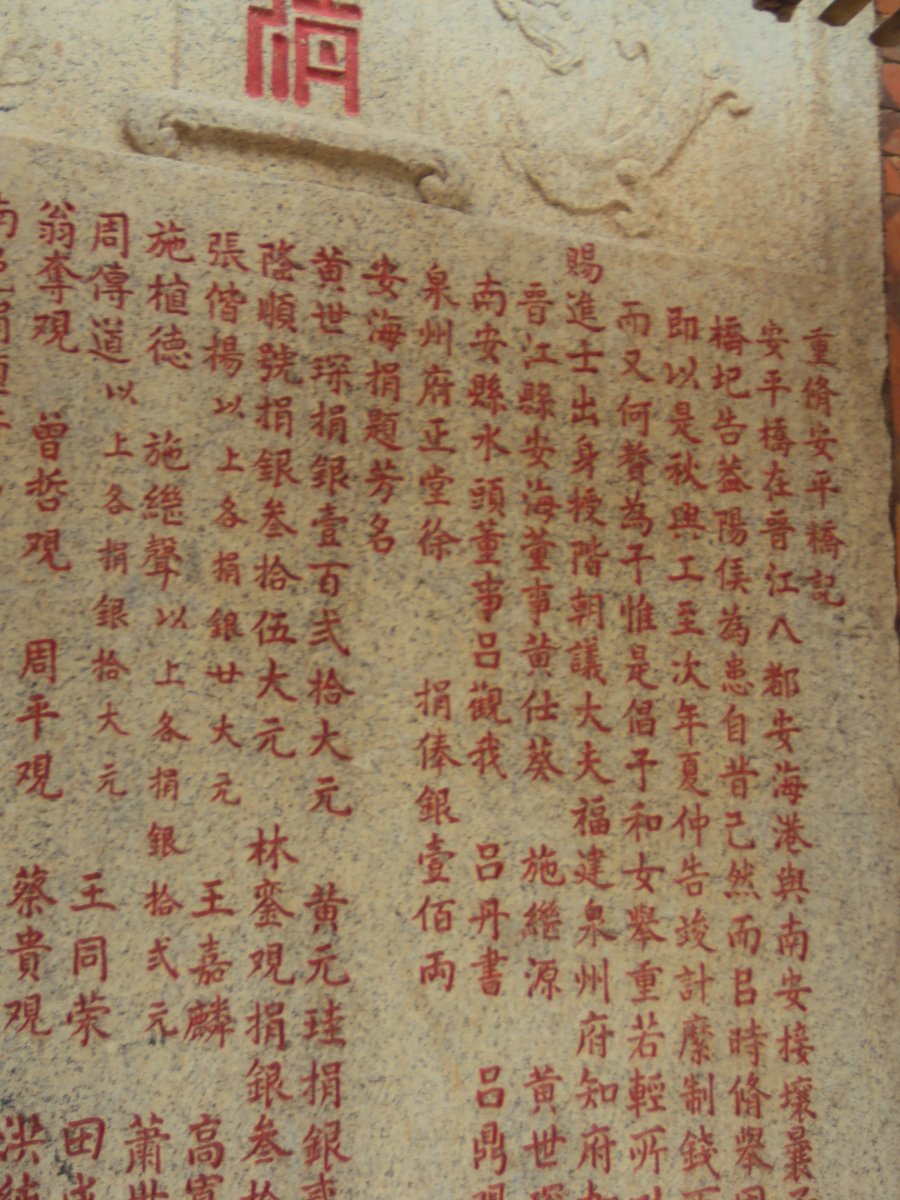 重脩安平橋記
安平橋在晋江八都安海港與南安接壤曩
橋圮告益陽侯為患自昔已然而㠯時脩舉
即以是秋興工至次年夏仲告竣計縻制錢
而又何贅為予惟是倡予和女舉重若輕所
賜進士出身授階朝議大夫福建泉州府知府加
晋江縣安海董事黄仕葵 施繼源 黄世琛
南安縣水頭董事呂觀我 呂丹書 呂鼎观
泉州府正堂徐 捐俸銀壹佰両
安海捐題芳名
黄世琛捐銀壹百弍拾大元 黄元珪捐銀
蔭順號捐銀叁拾伍大元 林銮观捐銀叁拾
張偕揚以上各捐銀廿大元 王嘉麟 高
施植德 施繼聲以上各捐銀拾弍元 蕭世
周傳道以上各捐銀拾大元 王同荣 田
翁奪观 曾哲观 周平观 蔡貴观 洪
南